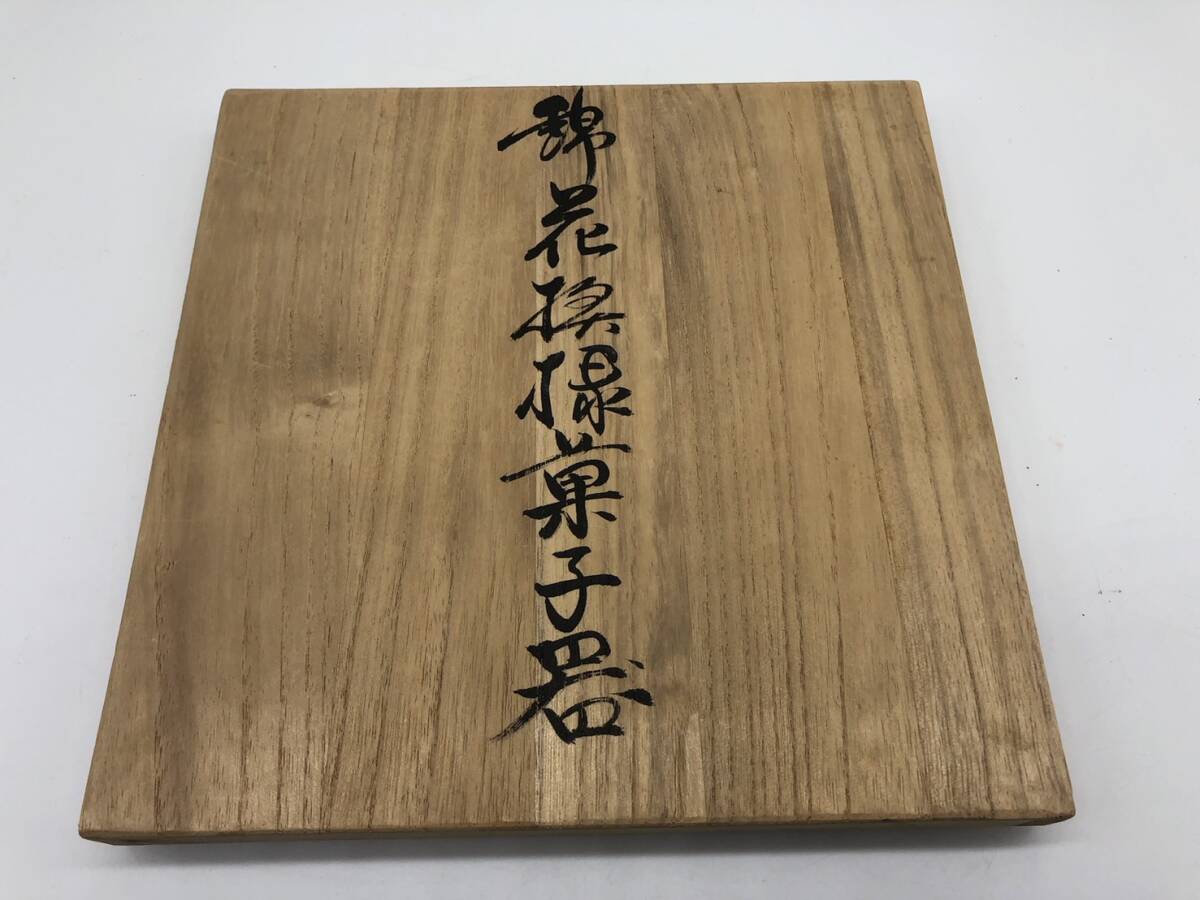 錦花模様菓子器